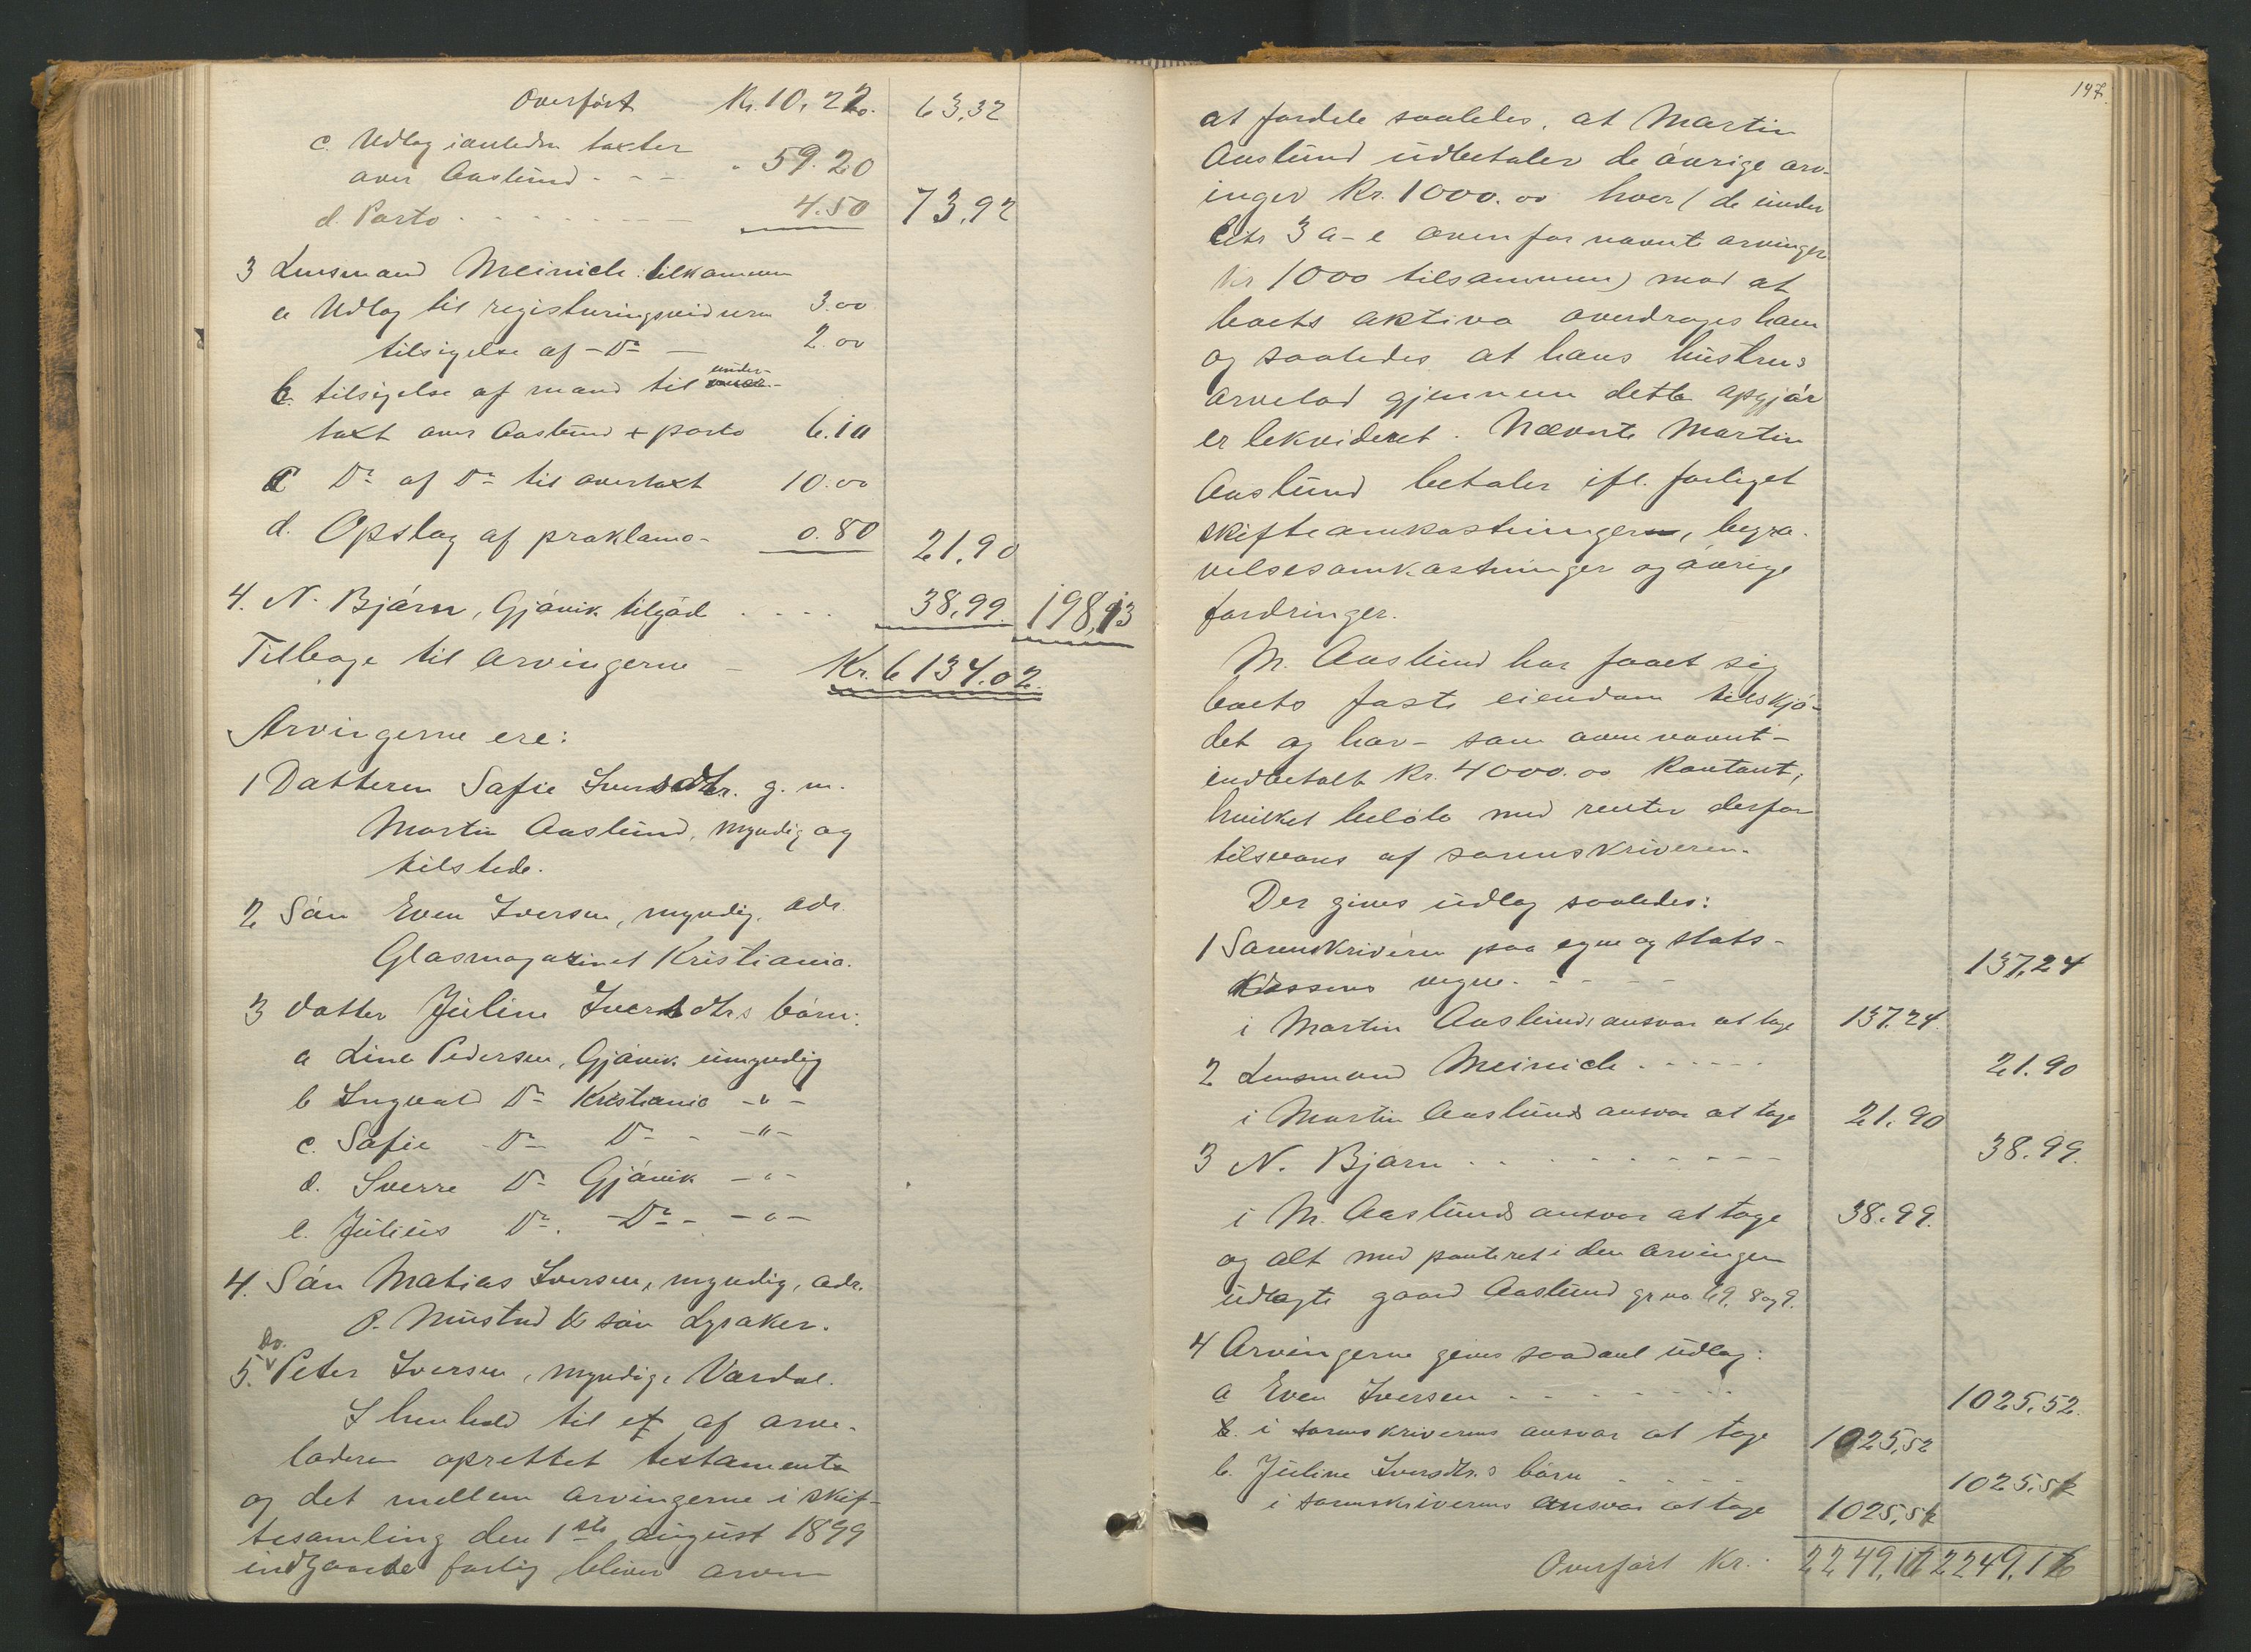 Overført Kr. 10.22 63,32
c. Udlag i anledn taxter
over Aaslund - - - " 59.20
d. Porto - - - - - - 4.50 73,92
3 Lensmand Meinich tilkommer
a Udlag til registreringsvidnerne 3.00
tilsigelse af - Do - 2.00
b. tilsigelse af mænd til under-
taxt over Aaslund + porto 6.10
c Do af Do til overtaxt 10.00
d. Opslag af proklama - 0.80 21,90
4. N. Bjørn, Gjøvik tilgod . . . . 38,99 198,13
Tilbage til arvingerne - Kr. 6134.02.
Arvingerne ere:
1 Datteren Sofie Iversdtr. g. m.
Martin Aaslund, myndig og
tilstede.
2 Søn Even Iversen, myndig, adr.
Glasmagazinet Kristiania.
3 datter Juline Iversdtrs børn:
a Lina Pedersen, Gjøvik umyndig
b Ingvald Do Kristiania - " -
c. Sofie Do Do - - " -
d. Sverre Do Gjøvik - " -
e. Julius Do. - Do - - " -
4. Søn Mathias Iversen, myndig, adr.
O. Mustad & søn Lysaker.
5. Do. Peter Iversen, myndig, Vardal.
I henhold til et af arve-
laderen oprettet testamente
og det mellem arvingerne i skif-
tesamling den 1ste august 1899
indgaaede forlig bliver arven
147.
at fordele saaledes, at Martin
Aaslund udbetaler de øvrige arv-
inger Kr. 1000.00 hver (de under
litr 3 a - e ovenfor nævnte arvinger
Kr 1000 tilsammen) mod at
boets aktiva overdrages ham
og saaledes at hans hustrus
arvelod gjennem dette opgjør
er likvideret. Nævnte Martin
Aaslund betaler ifl. forliget
skifteomkostninger, begra-
velsesomkostninger og øvrige
fordringer.
M. Aaslund har faaet sig
boets faste eiendom tilskjø-
det og har - som ovennævnt -
indbetalt Kr. 4000.00 kontant,
hvilket beløb med renter derfor
tilsvares af sorenskriveren.
Der gives udlag saaledes:
1 Sorenskriveren paa egne og stats-
kassens vegne - - - - 137,24
i Martin Aaslunds ansvar at tage 137.24.
2 Lensmand Meinich - - - - - 21.90
i Martin Aaslunds ansvar at tage 21.90
3 N. Bjørn - - - - - - - - - 38.99.
i M. Aaslunds ansvar at tage 38.99.
og alt med panteret i den arvingen
udlagte gaard Aaslund gr no 69, 8 og 9.
4 Arvingerne gives saadant udlag:
a Even Iversen - - - - - - - 1025.52.
i sorenskriverens ansvar at tage 1025,52
b. Juline Iversdtr.s børn - - - - 1025.52
i sorenskriverens ansvar at tage 1025,52
Overført Kr. 2249,17 2249,17